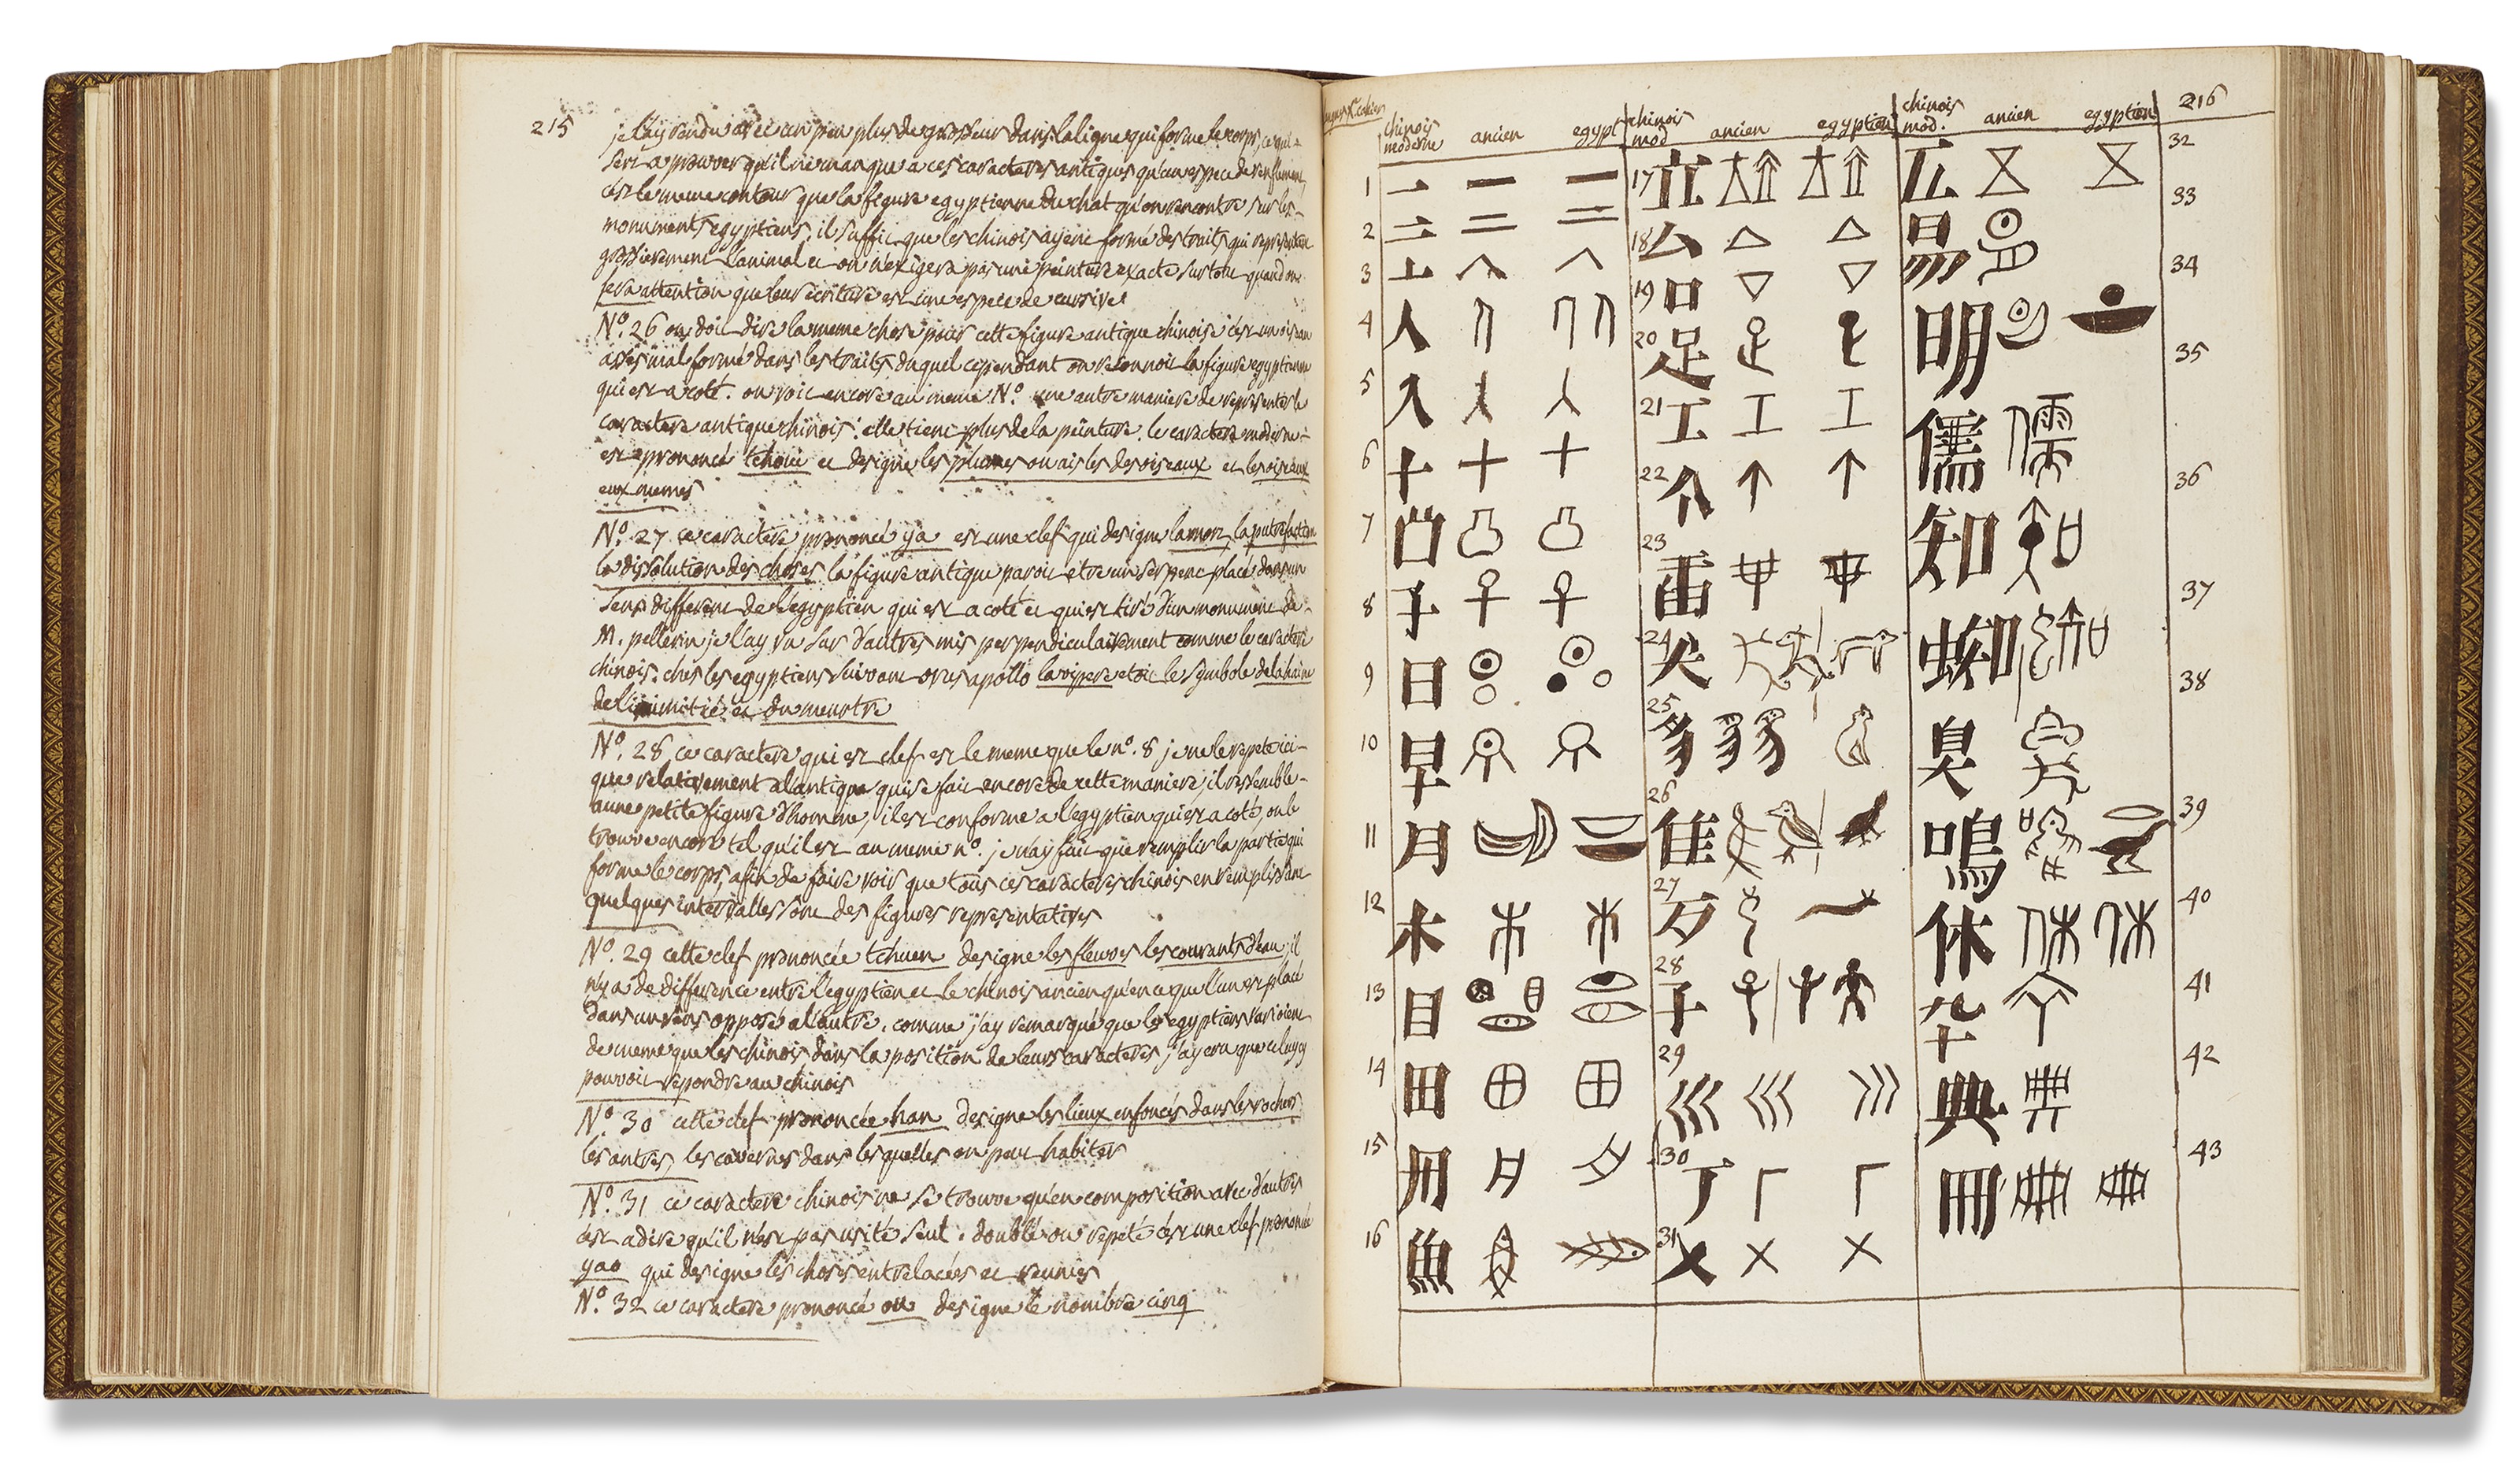 215
je l'ay rendu avec un peu plus de grosseur dans la ligne qui forme le corps, ce qui
sert a prouver qu'il ne manque a ces caracteres antiques qu'un espece de renflement,
c'est le meme contour que la figure egyptienne du chat qu'on rencontre sur les
monuments egyptiens, il suffit que les chinois ayent formé des traits qui representent
grossierement l'animal et on n'exigera pas une peinture exacte surtout quand on
fera attention que leur ecriture est une espece de cursive
N.º 26 on doit dire la meme chose pour cette figure antique chinoise c'est un oiseau
assés mal formé dans les traits duquel cependant on reconnoit la figure egyptienne
qui est a coté. on voit encore au meme N.º une autre maniere de representer le
caractere antique chinois: elle tient plus de la peinture. le caractere moderne
est prononcé tchoui et designe les plumes ou aisles des oiseaux et les oiseaux
eux memes
N.º 27 ce caractere prononcé ya est une clef qui designe la mort, la putrefaction
la dissolution des choses la figure antique paroit etre un serpent placé dans un
sens different de l'egyptien qui est a coté et qui est tiré d'un monument de
M. pellerin je l'ay vu sur d'autres mis perpendiculairement comme le caractere
chinois. chés les egyptiens suivant orus apollo la vipere etoit le symbole de la haine
de l'inimitié et du meurtre
N.º 28 ce caractere qui est clef est le meme que le nº. 8 je ne le repete ici
que relativement a l'antique qui se fait encore de cette maniere, il ressemble
a une petite figure d'homme, il est conforme a l'egyptien qui est a coté, on le
trouve encore tel qu'il est au meme nº. je n'ay fait que remplir la partie qui
forme le corps, afin de faire voir que tous ces caracteres chinois en remplissant
quelques intervalles sont des figures representatives
N.º 29 cette clef prononcée tchuen designe les fleuves les courants d'eau, il
n'y a de difference entre l'egyptien et le chinois ancien qu'en ce que l'un est placé
dans un sens opposé a l'autre. comme j'ay remarqué que les egyptiens varioient
de meme que les chinois dans la position de leurs caracteres j'ay cru que celuy cy
pouvoit repondre au chinois
N.º 30 cette clef prononcée han designe les lieux enfoncés dans les rochers
les antres, les cavernes dans lesquelles on peut habiter
N.º 31 ce caractere chinois ne se trouve qu'en composition avec d'autres
c'est a dire qu'il n'est pas usité seul. doublé ou repeté c'est une clef prononcée
yao qui designe les choses entrelacées et reunies
N.º 32 ce caractere prononcé ou designe le nombre cinq
216
chinois moderne ancien egypt
chinois mod ancien egyptien
chinois mod. ancien egyptien
1 一
2 二
3 亠
4 人
5 入
6 十
7 凹
8 子
9 日
10 早
11 月
12 木
13 目
14 田
15 用
16 魚
17 立
18 厶
19 口
20 足
21 工
22 个
23
24 犬
25 豸
26 隹
27 歹
28 子
29 巛
30
31 乂
32
33 易
34 明
35 儒
36 知
37 蜘
38 臭
39 鳴
40 休
41
42 典
43 冊